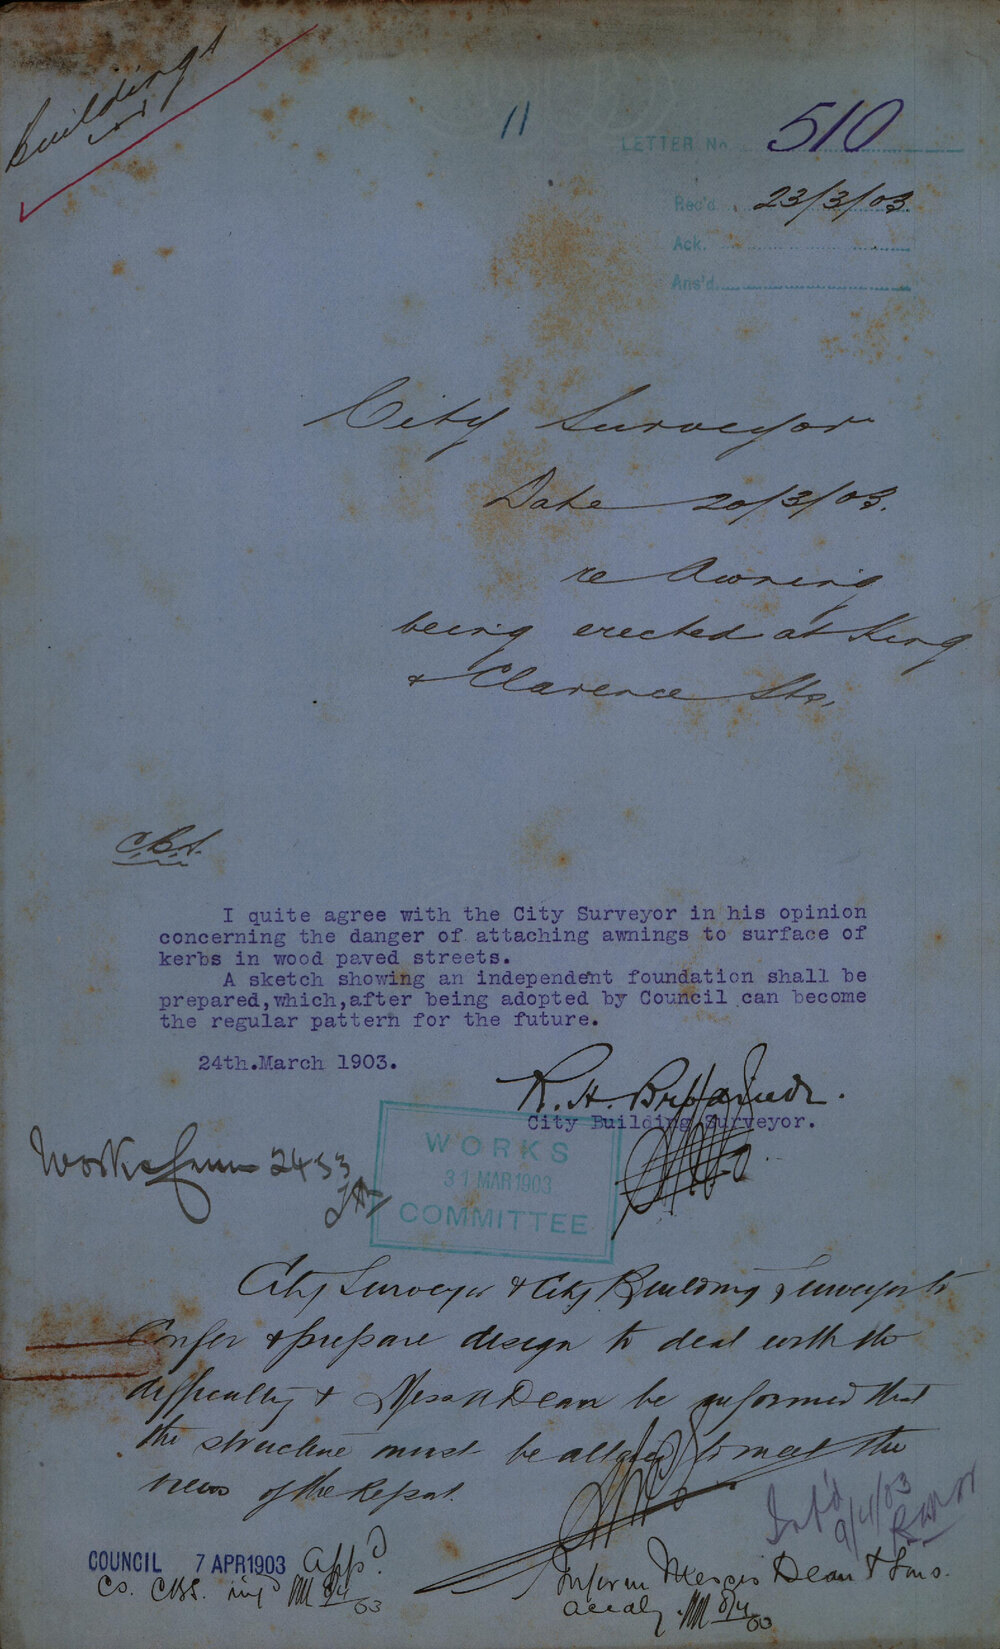 Buildings
11
LETTER No. 510
Rec'd. 23/3/03
Ack.
Ans'd.
City Surveyor
Date 20/3/03.
re Awning
being erected at King
& Clarence Sts.
C.B.S.
I quite agree with the City Surveyor in his opinion
concerning the danger of attaching awnings to surface of
kerbs in wood paved streets.
A sketch showing an independent foundation shall be
prepared,which,after being adopted by Council can become
the regular pattern for the future.
24th.March 1903.
R. H. Brodrick.
City Building Surveyor.
Works Comm 24 3 3
WORKS
31 MAR 1903
COMMITTEE
City Surveyor & City Building Surveyor to
Confer & prepare design to deal with the
difficulty & Messrs Dean be informed that
the structure must be altered to meet the
views of the Report.
Inf'd
9/4/03
COUNCIL 7 APR 1903 Appd.
CS. CBS. 8/4/03
Inform Messrs Dean & Sons.
accdly. 8/4/03